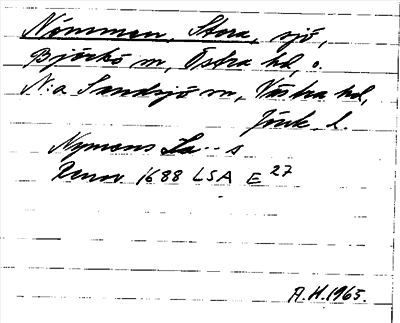 Nömmen, Stora, sjö,
Björkö sn, Östra hd, o.
N:a Sandsjö sn, Västra hd,
Jönk. l.
Nymens La--s
Renov. 1688 LSA E 27
A.H. 1965.